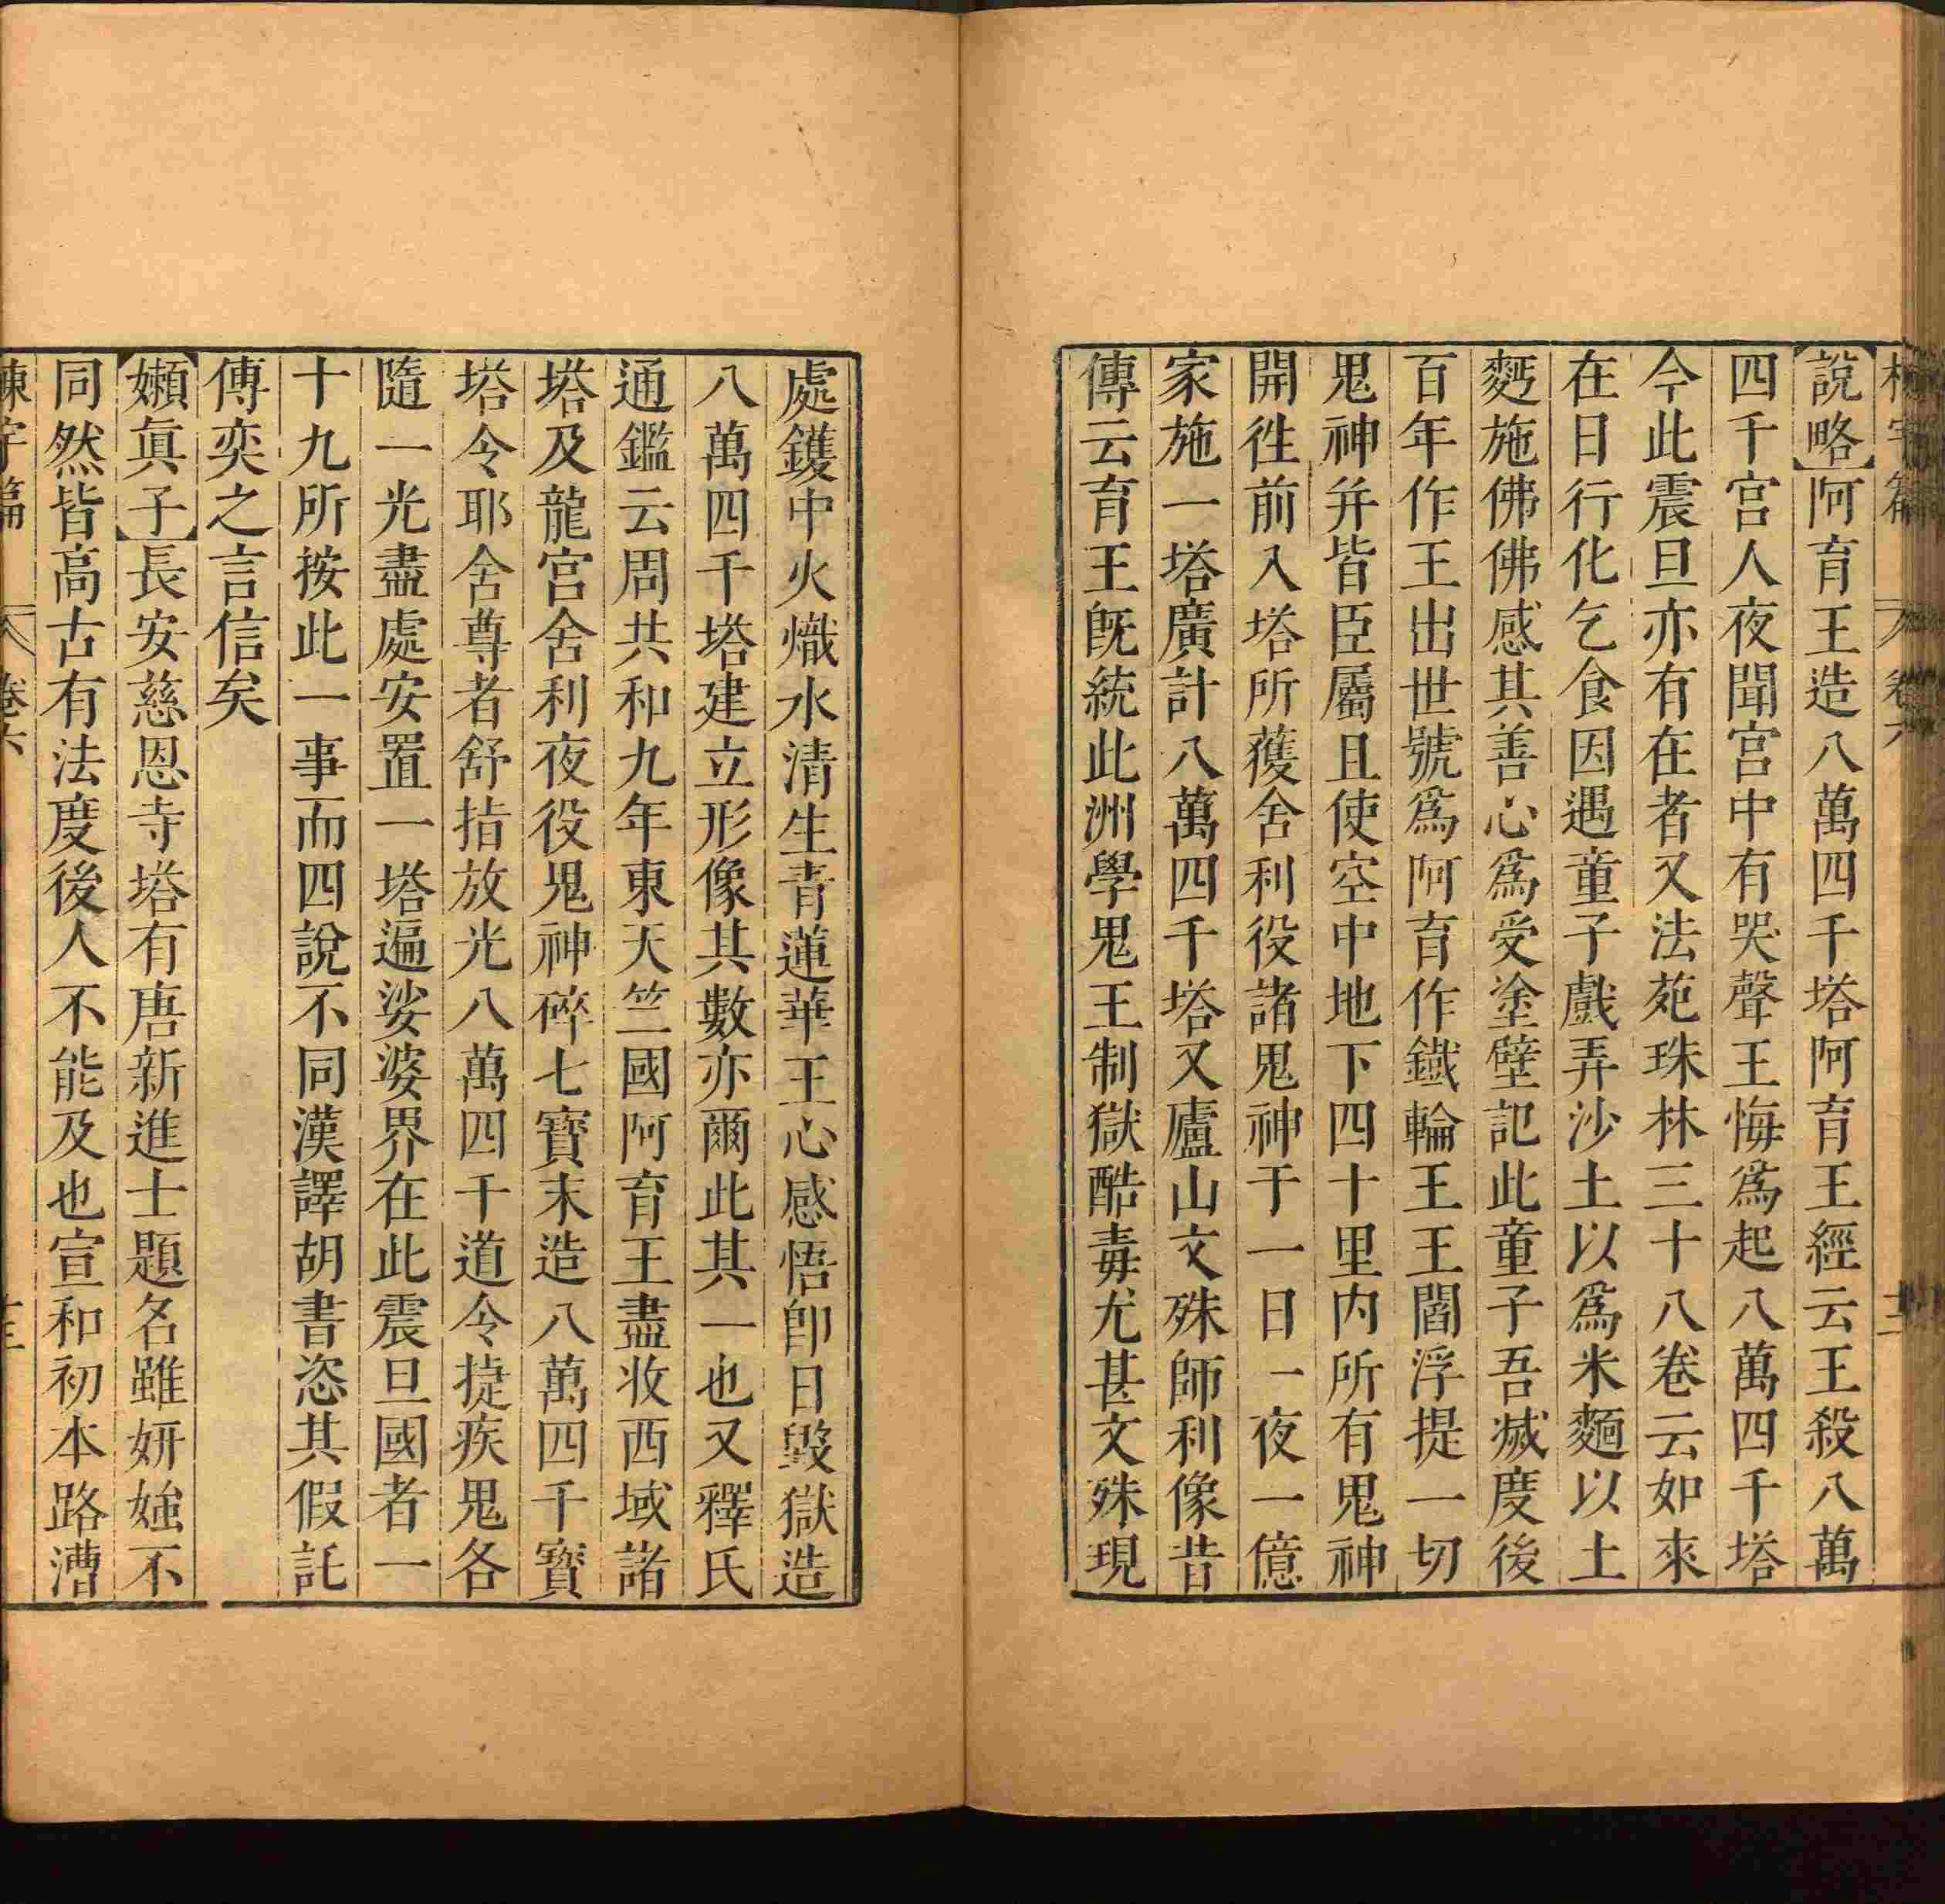 說略阿育王造八萬四千塔阿育王經云王殺八萬
四千宮人夜聞宮中有哭聲王悔爲起八萬四千塔
今此震旦亦有在者又法苑珠林三十八卷云如來
在日行化乞食因遇童子戲弄沙土以爲米麵以土
麫施佛佛感其善心爲受塗壁記此童子吾滅度後
百年作王出世號爲阿育作鐵輪王王閻浮提一切
鬼神并皆臣屬且使空中地下四十里内所有鬼神
開徃前入塔所獲舍利役諸鬼神于一日一夜一億
家施一塔廣計八萬四千塔又廬山文殊師利像昔
傳云育王旣統此洲學鬼王制獄酷毒尤甚文殊現
處鑊中火熾水清生青蓮華王心感悟卽日毀獄造
八萬四千塔建立形像其數亦爾此其一也又釋氏
通鑑云周共和九年東天竺國阿育王盡收西域諸
塔及龍宮舍利夜役鬼神碎七寶末造八萬四千寶
塔令耶舍尊者舒指放光八萬四千道令捷疾鬼各
隨一光盡處安置一塔遍娑婆界在此震旦國者一
十九所按此一事而四說不同漢譯胡書恣其假託
傅奕之言信矣
嬾眞子長安慈恩寺塔有唐新進士題名雖妍媸不
同然皆高古有法度後人不能及也宣和初本路漕